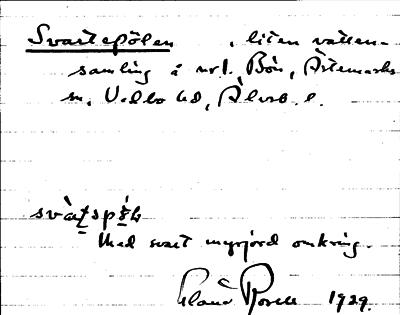 Svartepölen , liten vatten-
samling å nr 1. Bön, Ärtemarks
sn, Vedbo hd, Älvsb. l.
svàtspö̀l
Med svart myrjord omkring.
1929.